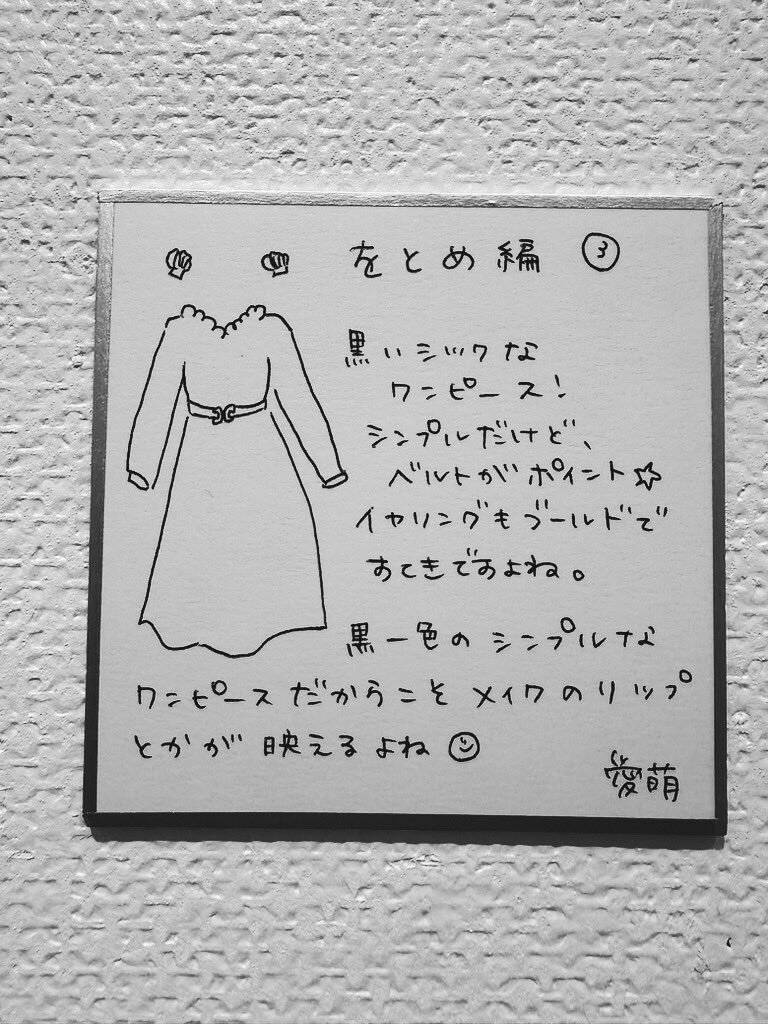 をとめ編 ③
黒いシックな
ワンピース!
シンプルだけど、
ベルトがポイント☆
イヤリングもゴールドで
すてきですよね。
黒一色のシンプルな
ワンピースだからこそメイクのリップ
とかが映えるよね☺
愛萌